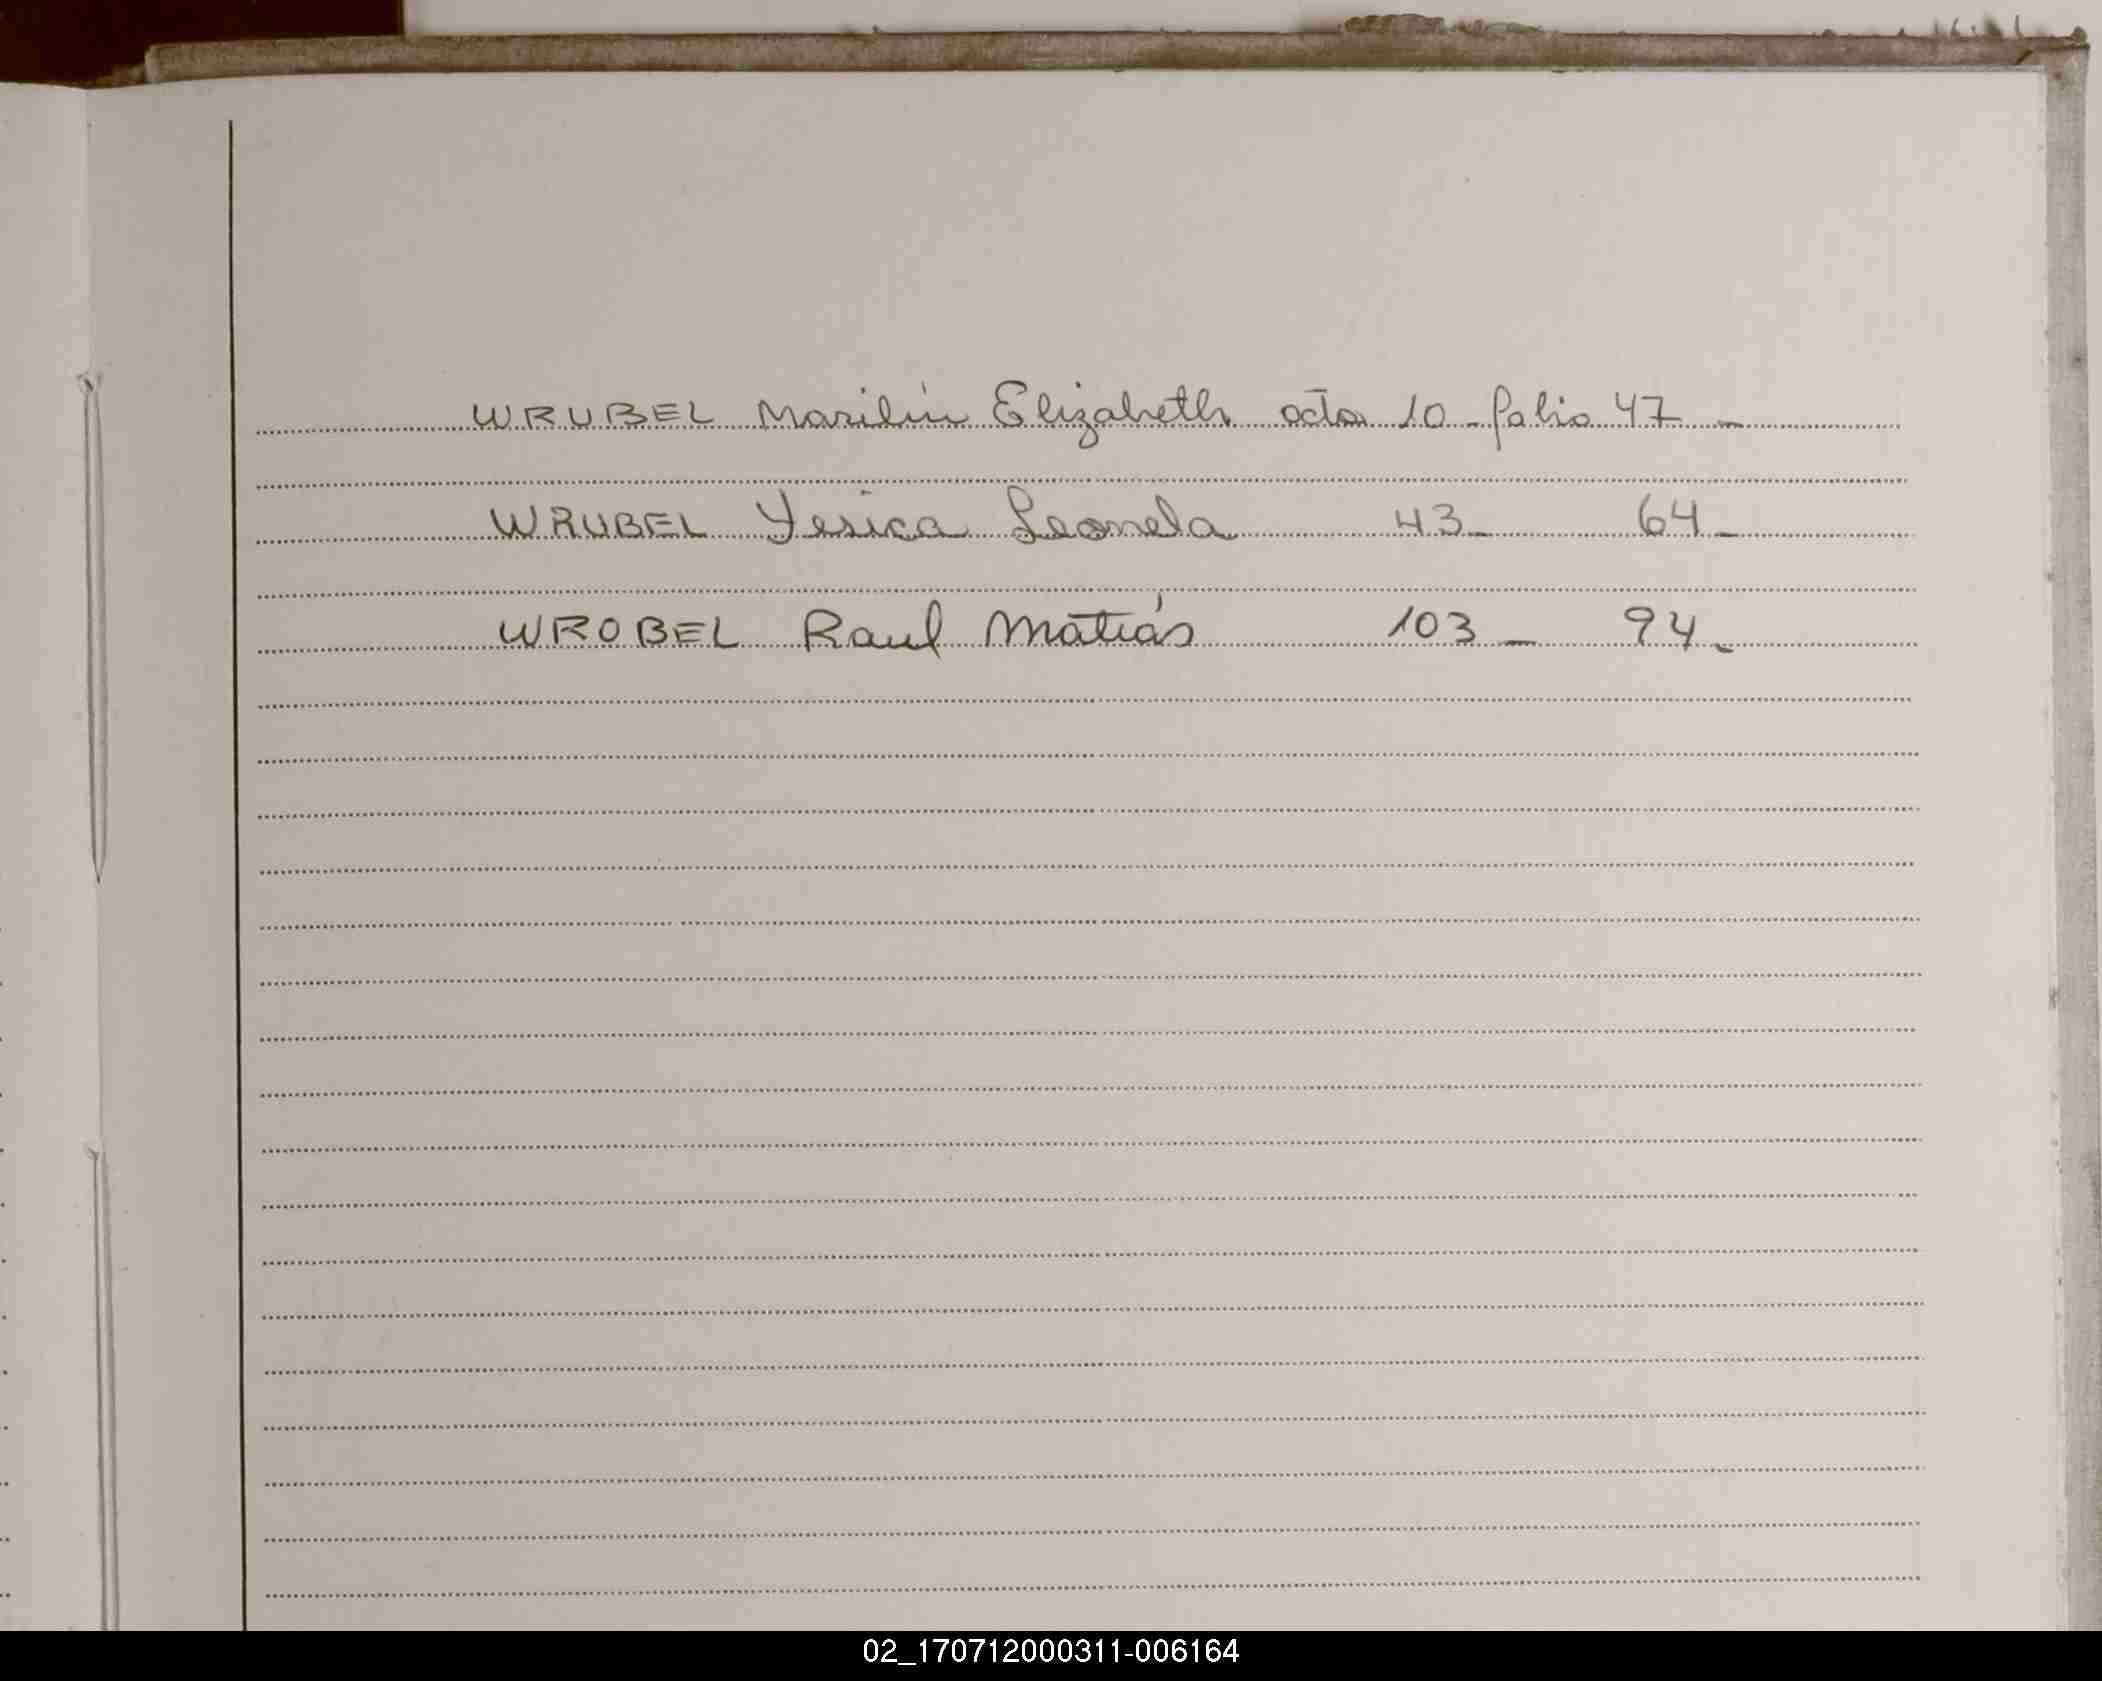 WRUBEL Marilín Elizabeth acta 10 - folio 47 -
WRUBEL Yesica Leonela 43 - 64 -
WROBEL Raul Matiás 103 - 94 -
02_170712000311-006164